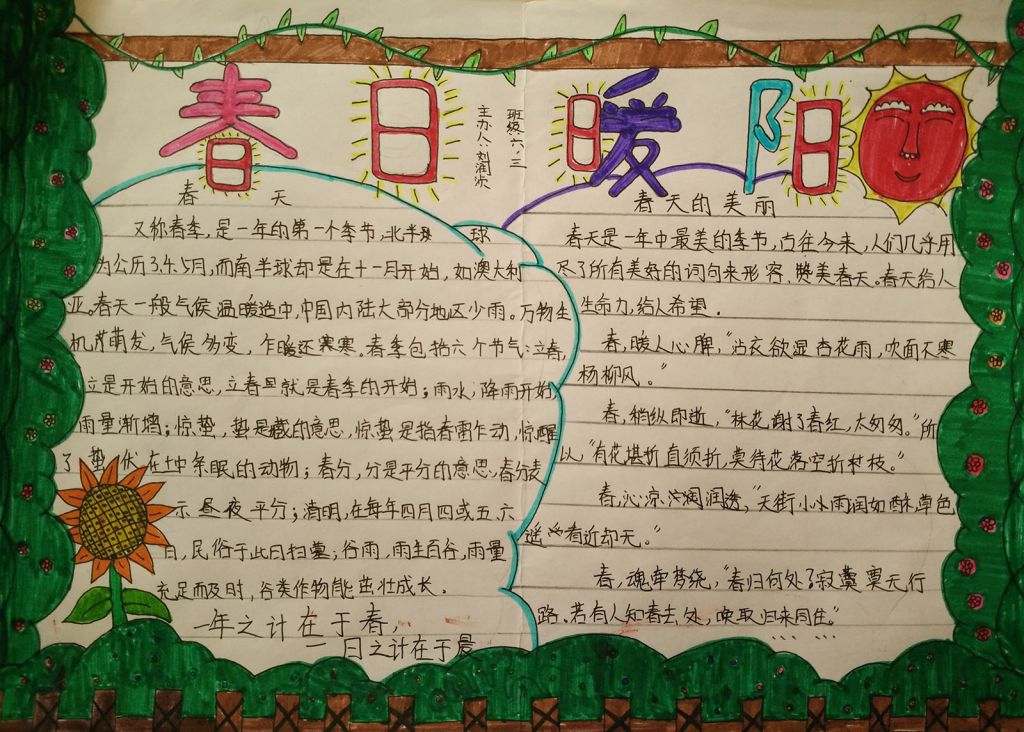 春日暖阳
班级:六、三
主办人:刘润
春天
又称春季,是一年的第一个季节,北半球
为公历3.4.5月,而南半球却是在十一月开始,如澳大利
亚。春天一般气候温暖适中,中国内陆大部分地区少雨。万物生
机芽萌发,气候多变,乍暖还寒。春季包括六个节气:立春,
立是开始的意思,立春就是春季的开始;雨水,降雨开始,
雨量渐增;惊蛰,蛰是藏的意思,惊蛰是指春雷乍动,惊醒
了蛰伏在土中冬眠的动物;春分,分是平分的意思,春分表
示昼夜平分;清明,在每年四月四或五、六
日,民俗于此日扫墓;谷雨,雨生百谷,雨量
充足而及时,谷类作物能茁壮成长。
一年之计在于春,
一日之计在于晨
春天的美丽
春天是一年中最美的季节,古往今来,人们几乎用
尽了所有美好的词句来形容,赞美春天。春天给人
生命力,给人希望.
春,暖人心脾,“沾衣欲湿杏花雨,吹面不寒
杨柳风。”
春,稍纵即逝,“林花谢了春红,太匆匆。”所
以“有花堪折直须折,莫待花落空折枝。”
春,沁凉润透,“天街小雨润如酥,草色
遥看近却无。”
春,魂牵梦绕,“春归何处?寂寞无行
路,若有人知春去处,唤取归来同住。”